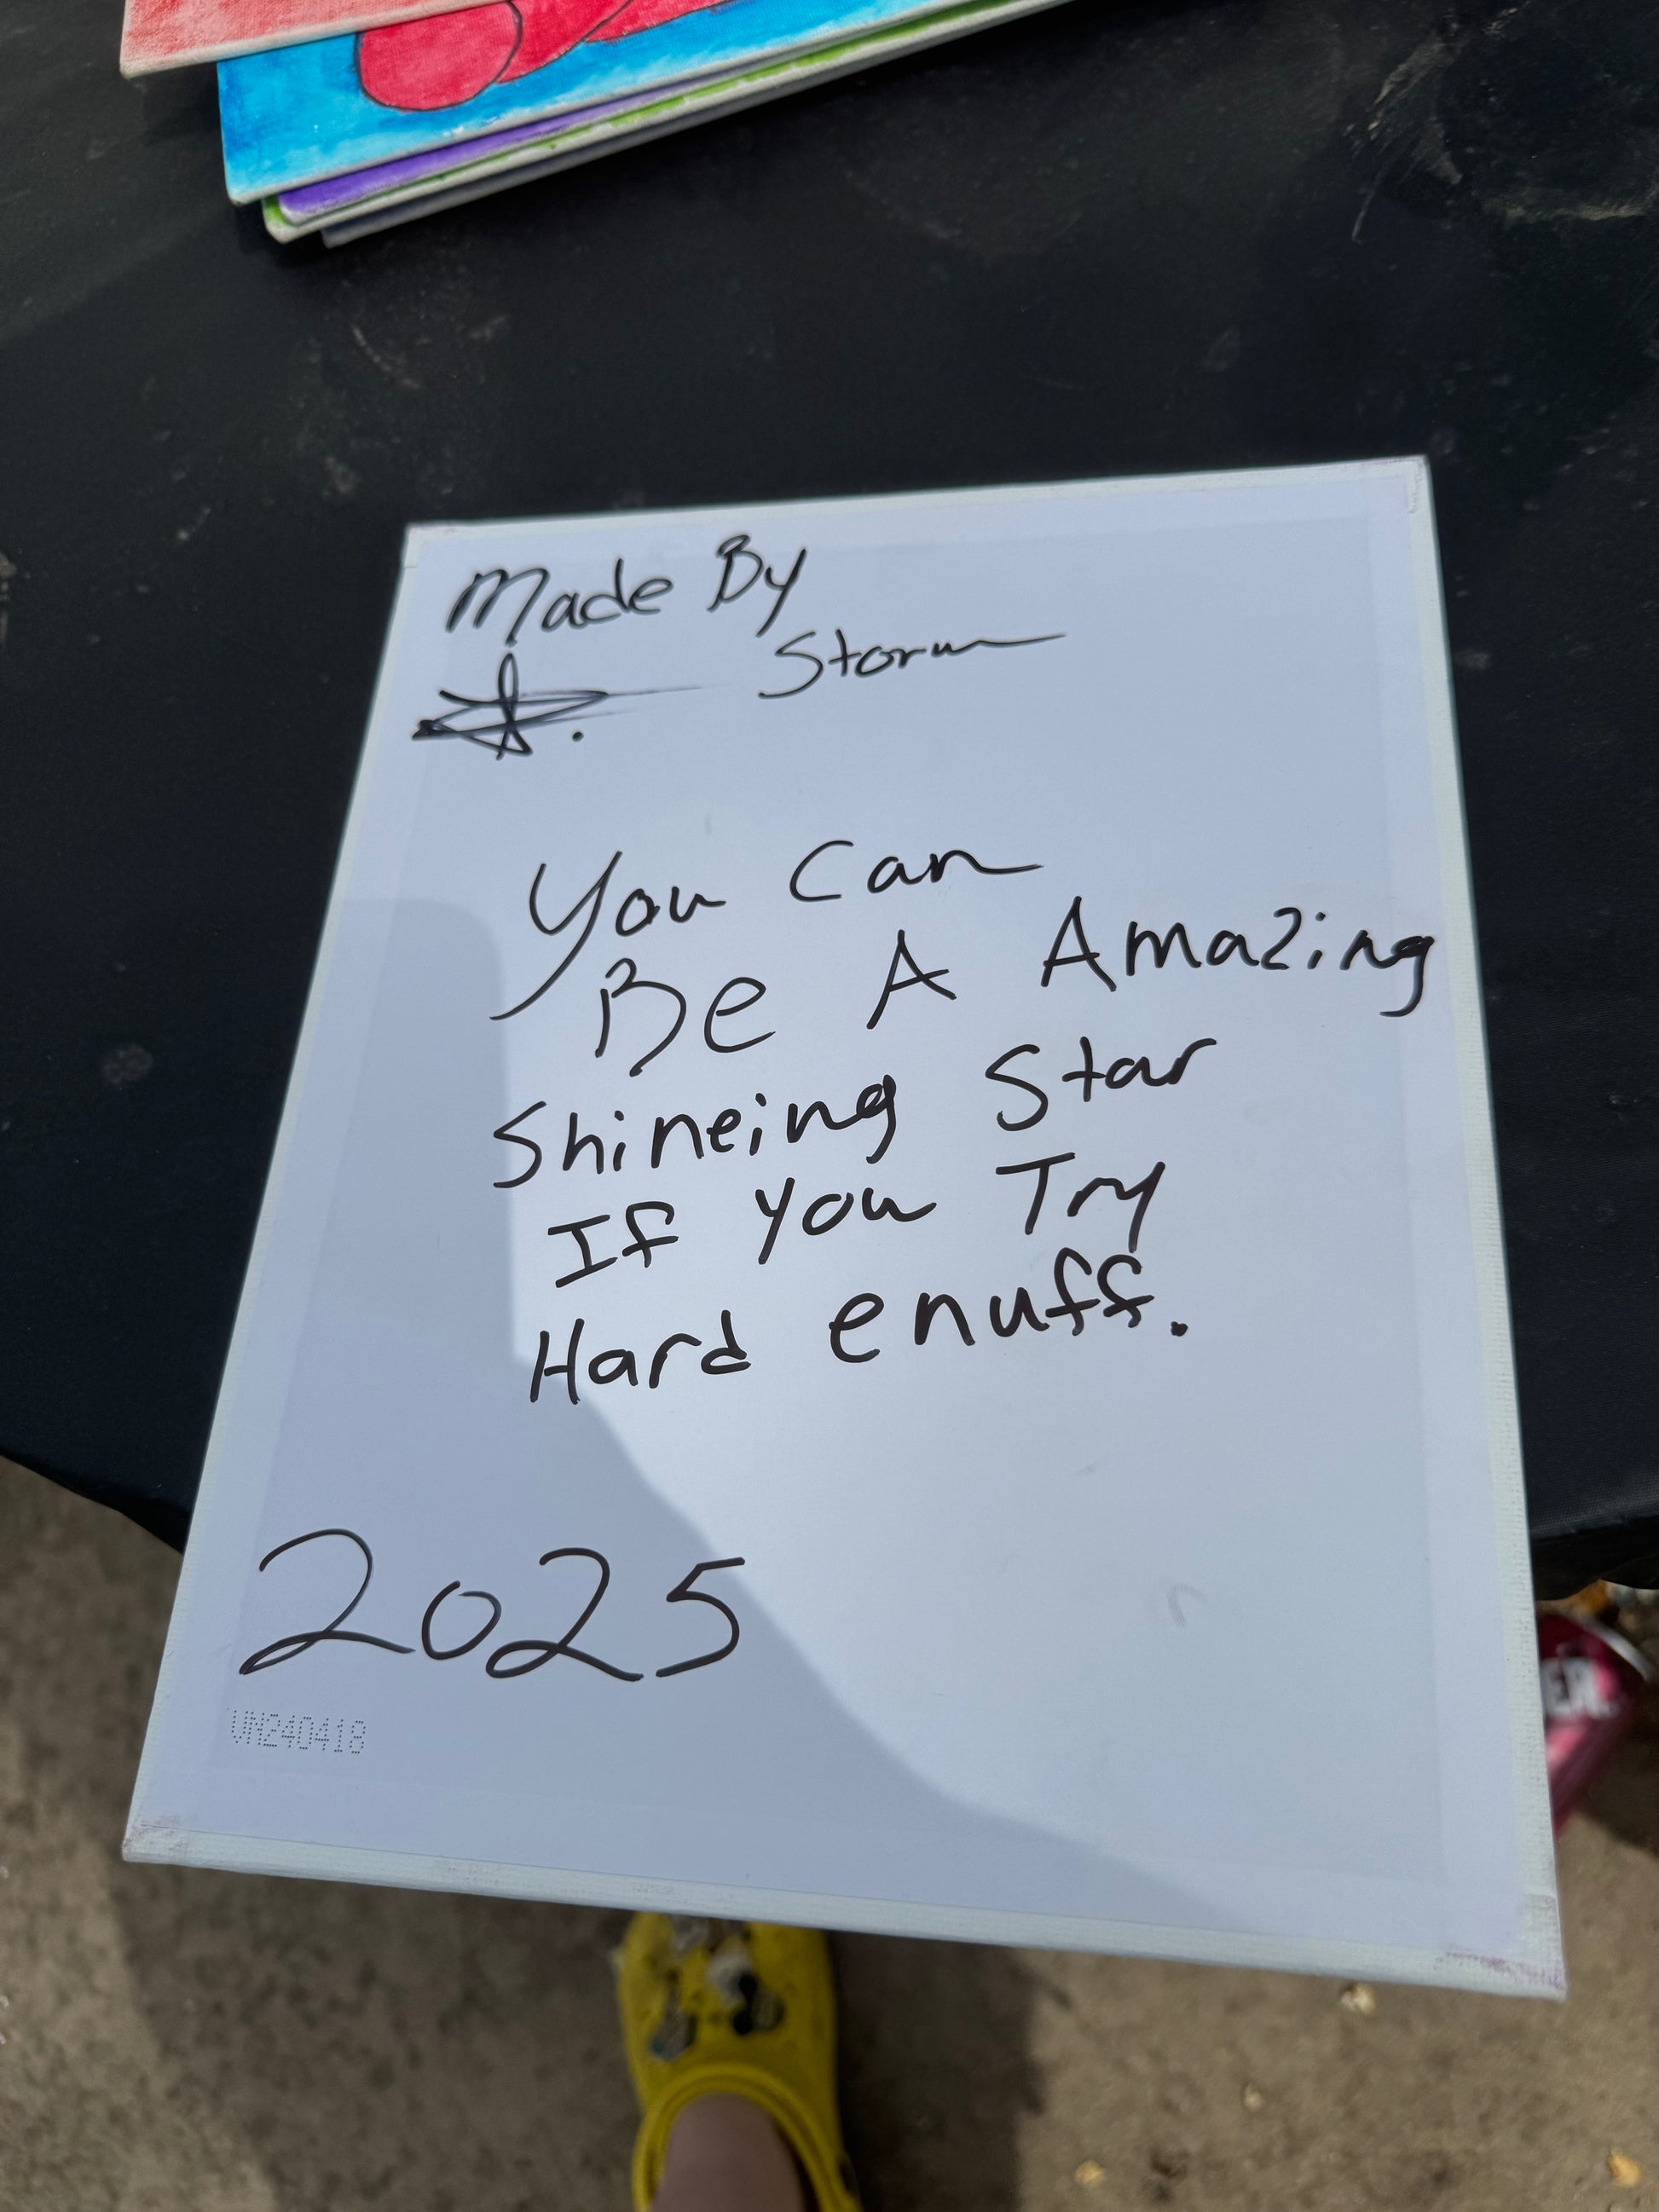 Made By
Storm
You Can
Be A Amazing
Shineing Star
If you Try
Hard enuff.
2025
VM240418
ER.